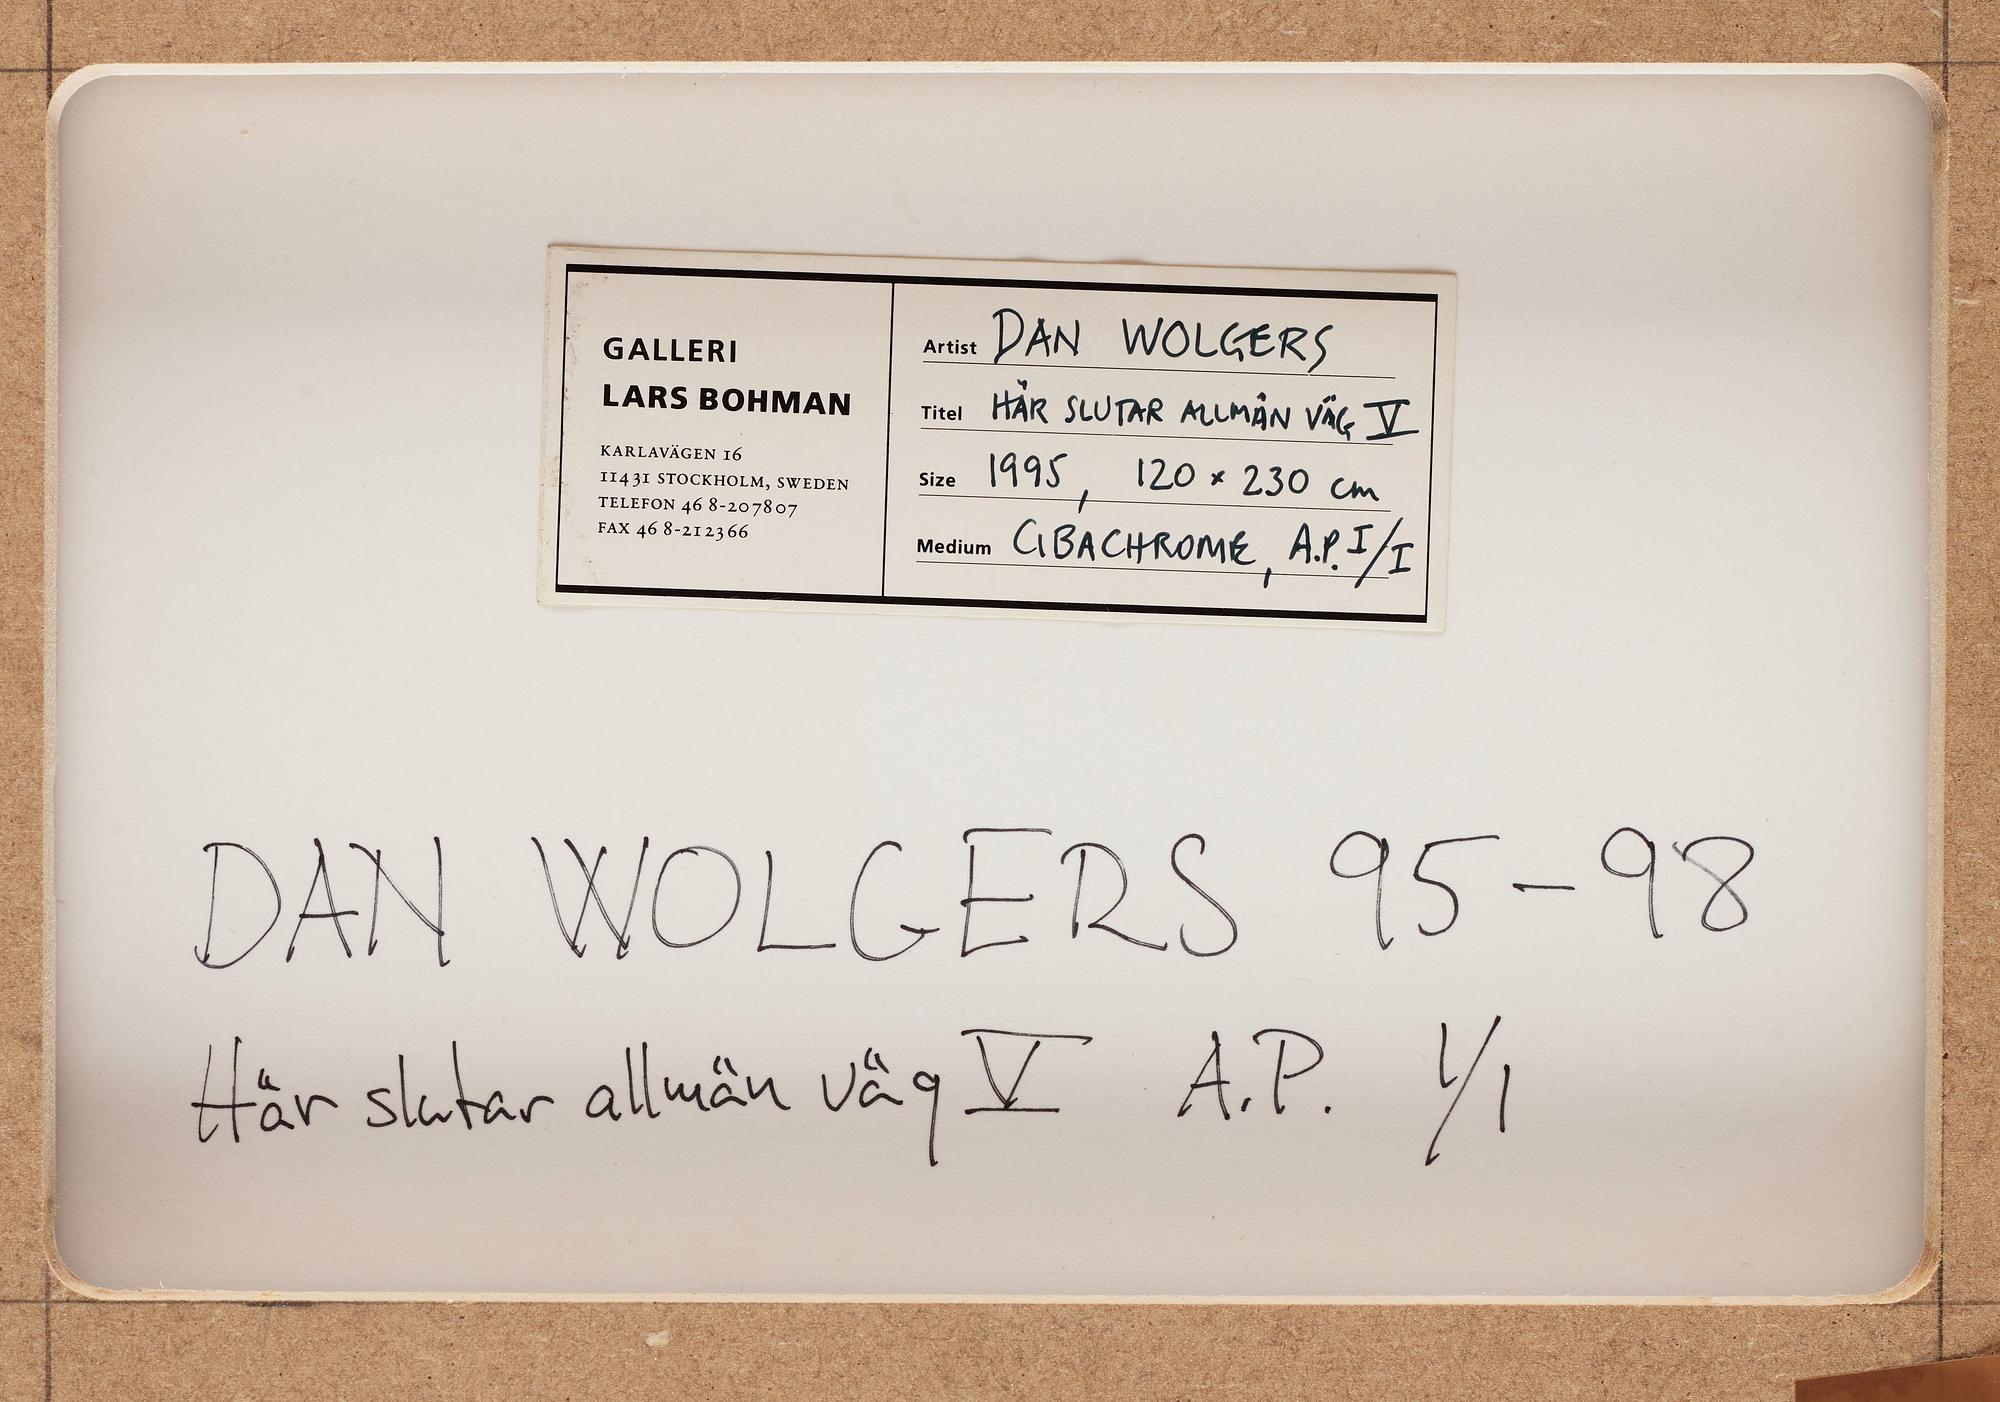 GALLERI
LARS BOHMAN
KARLAVÄGEN 16
11431 STOCKHOLM, SWEDEN
TELEFON 46 8-207807
FAX 46 8-212366
Artist DAN WOLGERS
Titel HÄR SLUTAR ALLMÄN VÄG V
Size 1995, 120 × 230 cm
Medium CIBACHROME, A.P. I/I
DAN WOLGERS 95-98
Här slutar allmän väg V A.P. 1/1